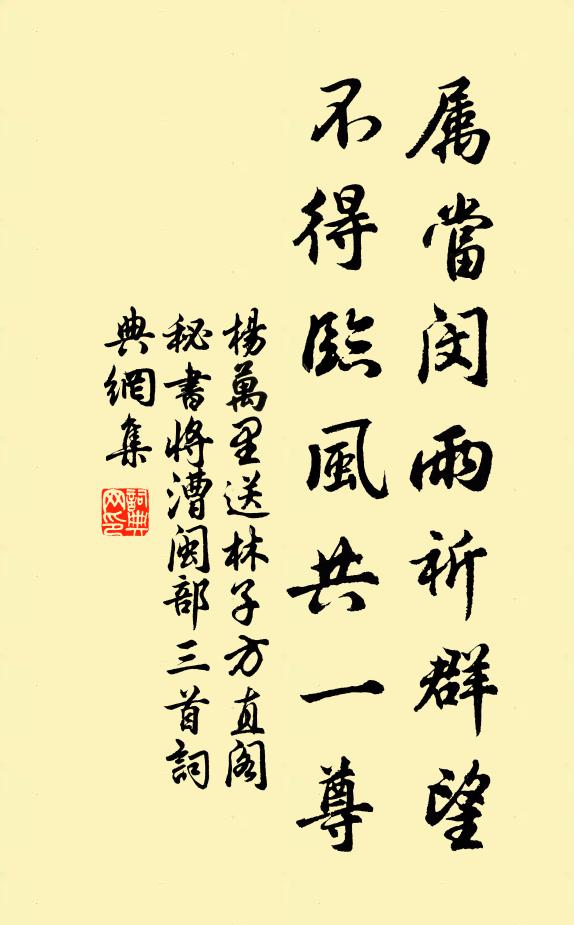 属當闵雨祈群望
不得臨風共一尊
楊萬里送林子方直阁
秘書将漕闽部三首詞
典網集
詞典网印